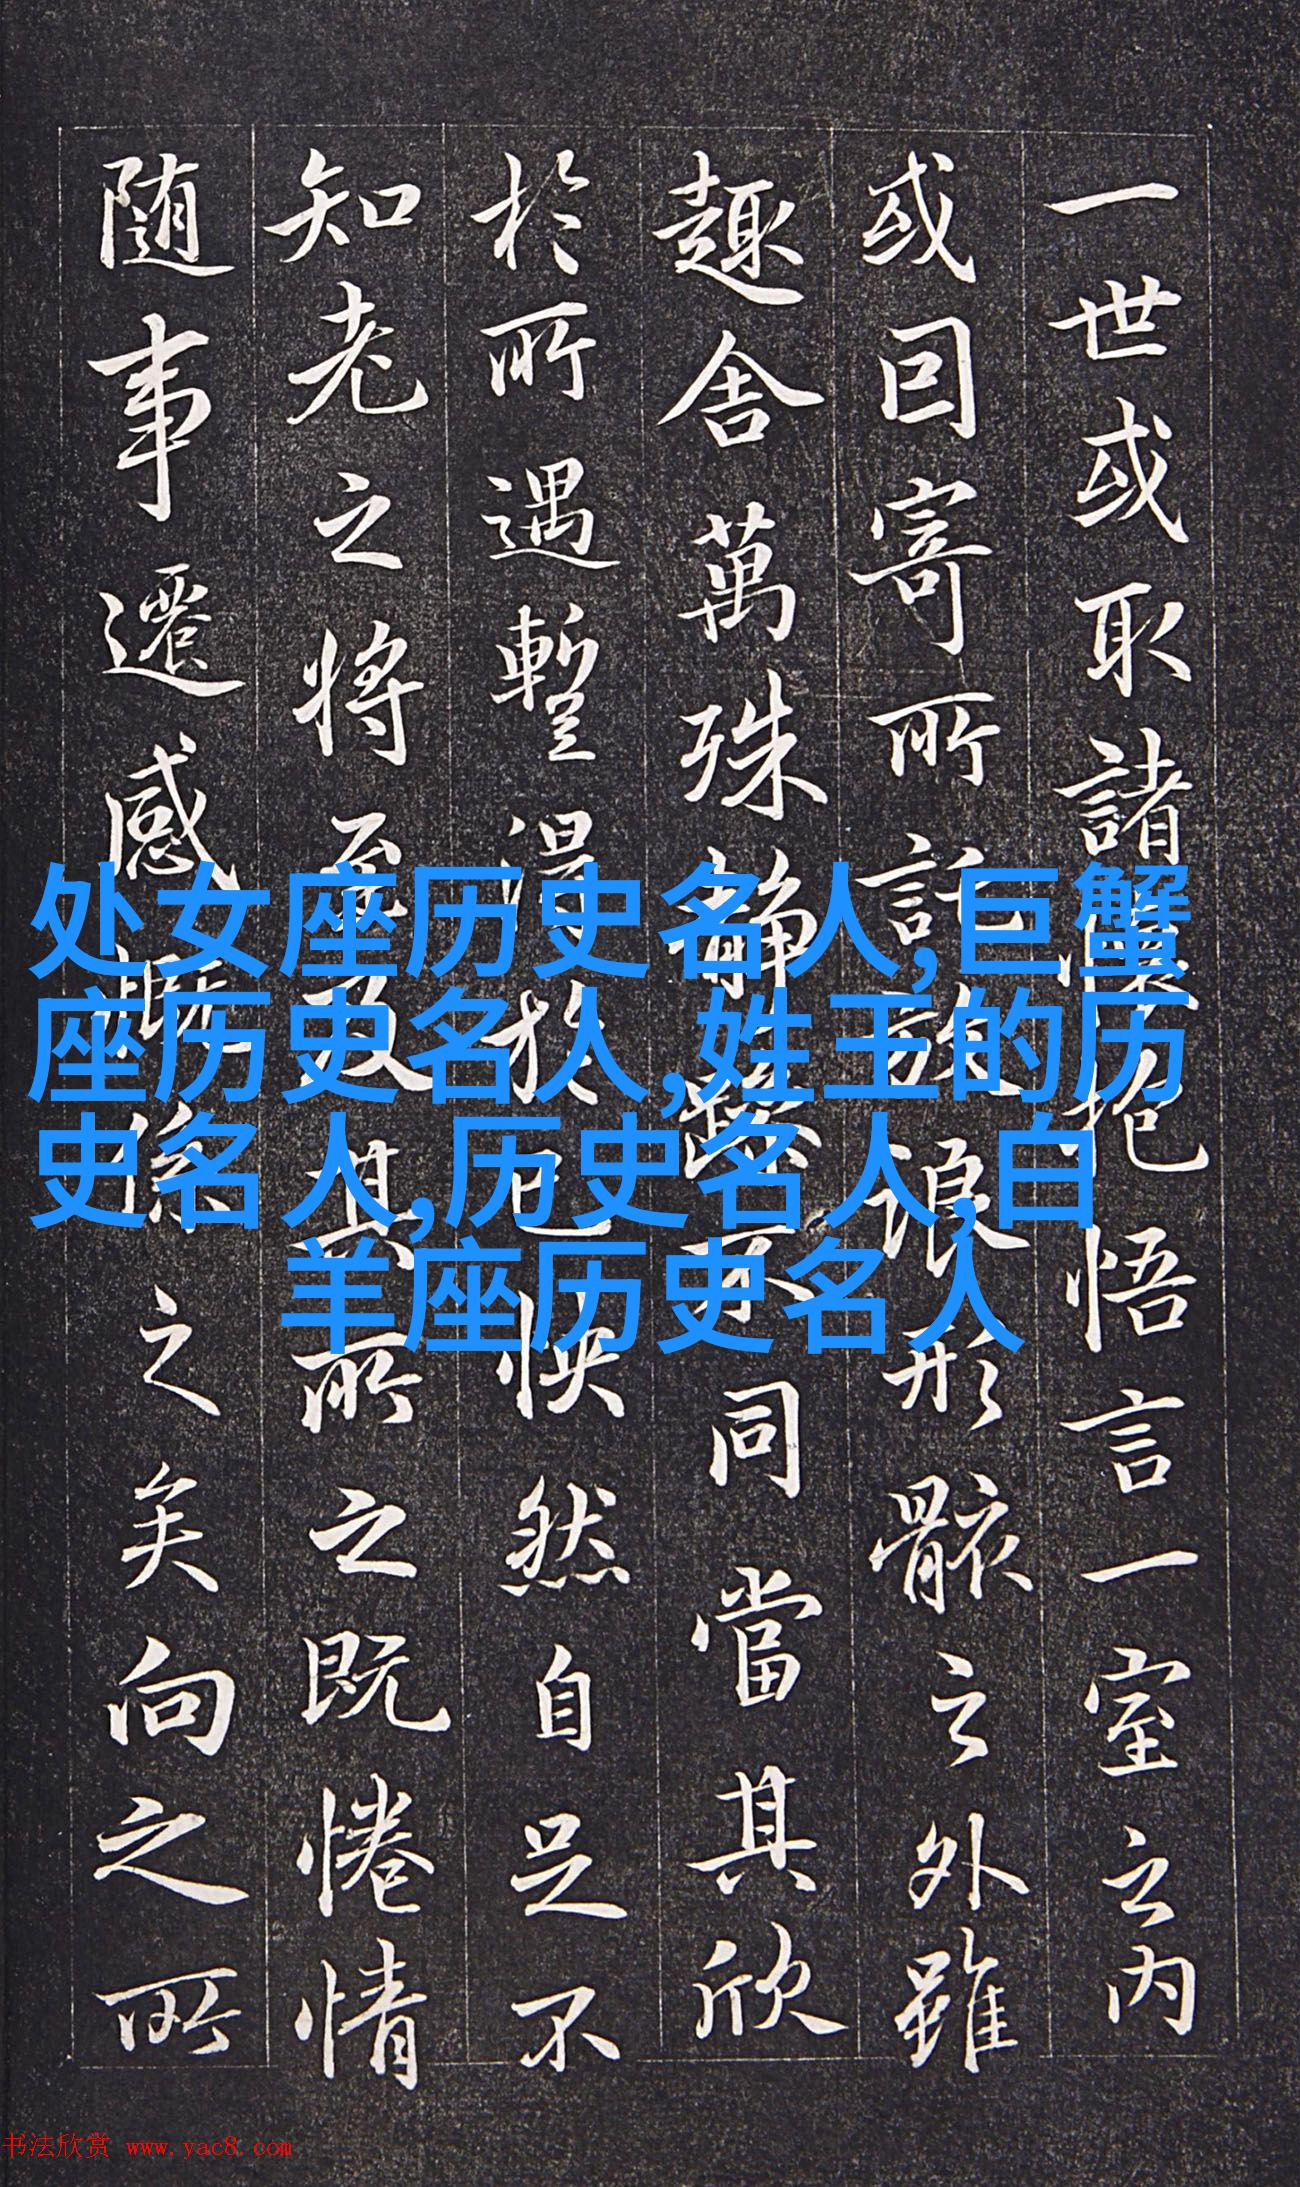 一世或取諸懷抱悟言一室之内
或因寄所託放浪形骸之外雖
趣舍萬殊静躁不同當其欣
於所遇暫得於己怏然自足不
知老之將至及其所之既惓情
随事遷感慨係之矣向之所
处女座历史名人,巨蟹
座历史名人,姓王的历
史名人,历史名人,白
羊座历史名人
书法欣赏 www.yac8.com